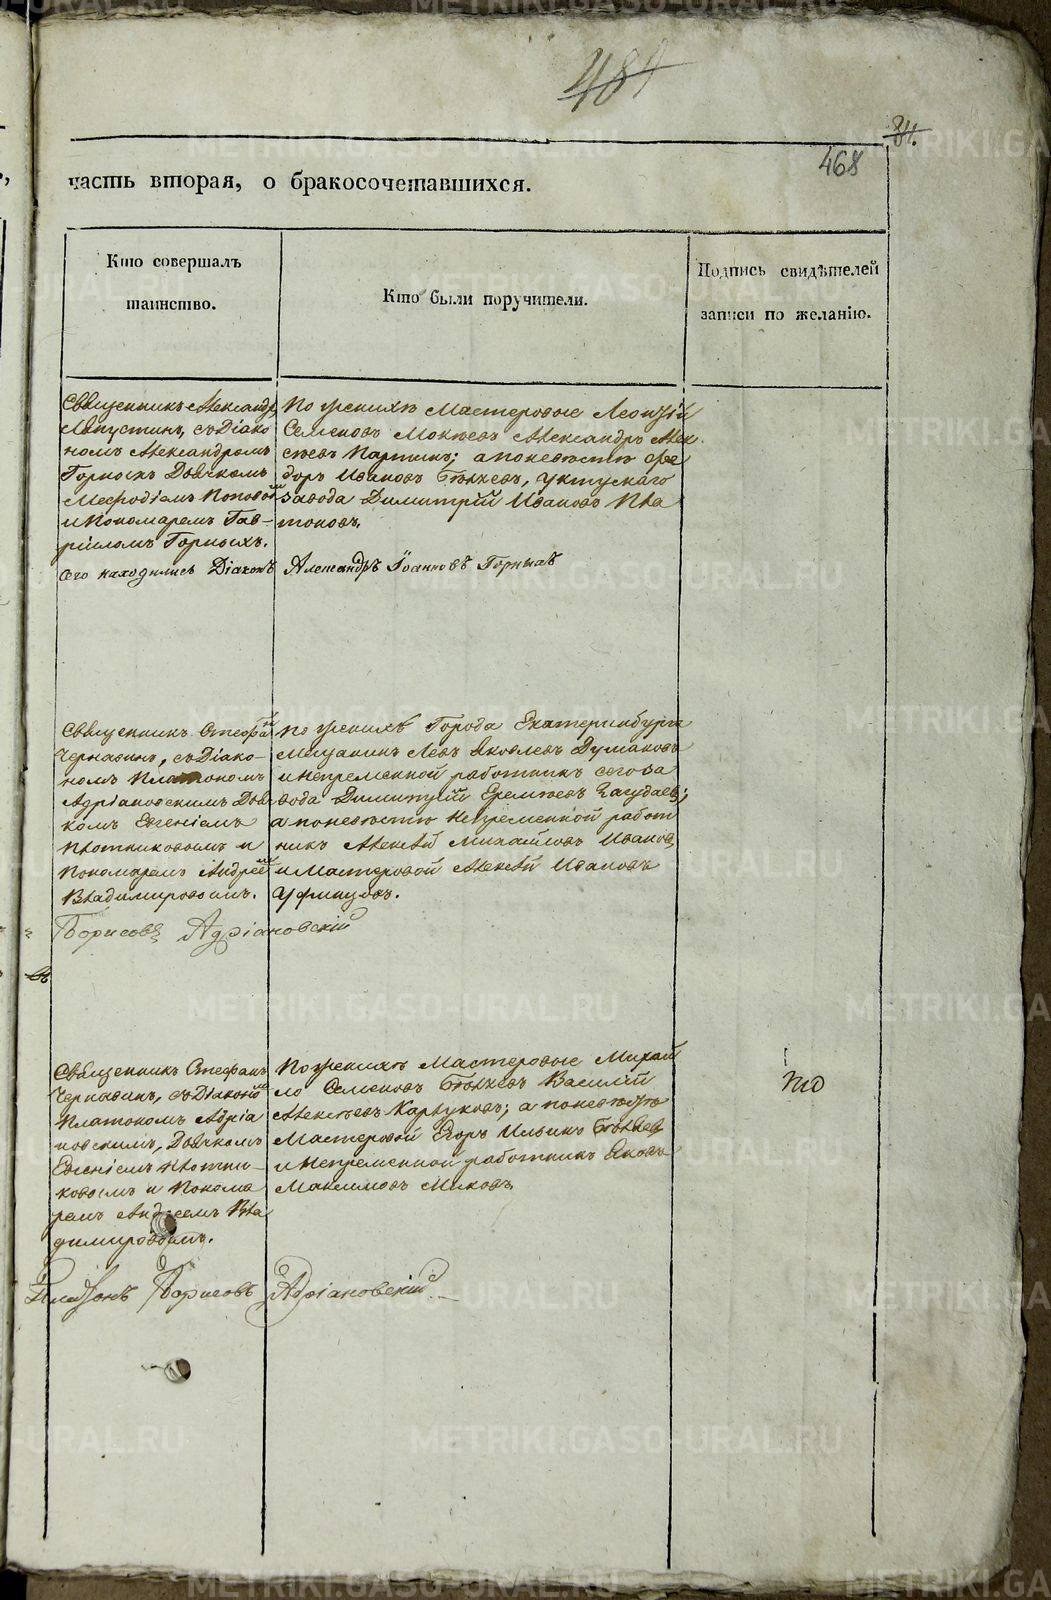 481
84.
468
часть вторая, о бракосочетавшихся.
Кто совершалъ
таинство.
Кто были поручители.
Подпись свидѣтелей
записи по желанію.
Священникъ Александръ
Августинъ, съ Діако
номъ Александромъ
Горныхъ Дьячкомъ
Меѳодіемъ Поповымъ
и Пономаремъ Гав-
ріиломъ Горныхъ.
По женихѣ Мастеровые Леонтій
Семеновъ Мокѣевъ Александръ Алек
сѣевъ Партинъ; а по невѣстѣ Ѳе
доръ Ивановъ Бѣляевъ, Уктускаго
завода Димитрій Ивановъ Пла
тоновъ.
сего находились Діаконъ Александръ Іоанновъ Горныхъ
Священникъ Стефанъ
Чернавинъ, съ Діако-
номъ Платономъ
Адріановскимъ Дьяч
комъ Евгеніемъ
Плотниковымъ и
Пономаремъ Андреемъ
Владимировымъ.
По женихѣ Города Екатеринбурга
Мещанинъ Левъ Яковлевъ Думановъ
и непременной работникъ сего за
вода Димитрій Еремѣевъ
а по невѣстѣ Непременной работ
никъ Алексѣй Михайловъ Ивановъ,
и Мастеровой Алексѣй Ивановъ
Уфинцовъ.
Борисовъ Адріановскій
Священникъ Стефанъ
Чернавинъ, съ Діакономъ
Платономъ Адріа
новскимъ, Дьячкомъ
Евгеніемъ Плотни-
ковымъ и Понома
ремъ Андреемъ Вла
димировымъ.
По женихѣ Мастеровые Михай
ло Семеновъ Бѣляевъ Василій
Алексѣевъ Карнуковъ; а по невѣстѣ
Мастеровой Егоръ Ильинъ Бѣляевъ
и Непременной работникъ Яковъ
Максимовъ Миковъ.
Платонъ Борисовъ Адріановскій